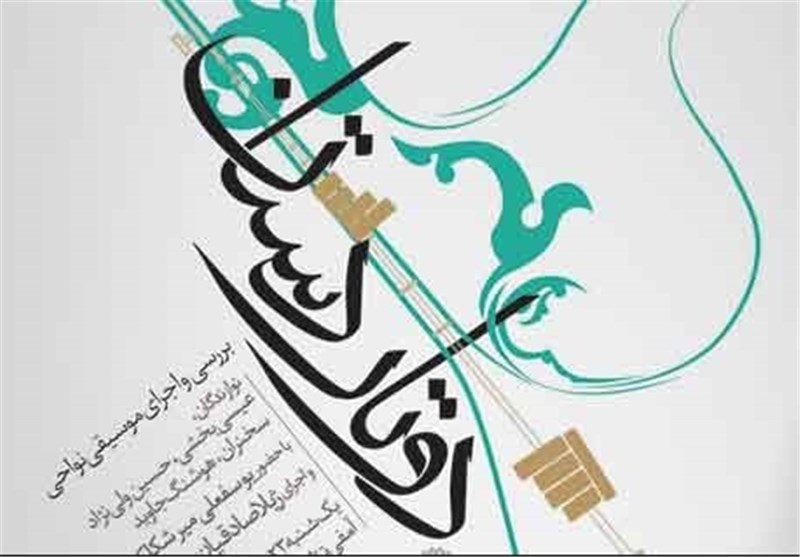 دوتار دستان
بررسی و اجرای موسیقی نواحی
نوازندگان:
عیسی بخشی، حسین ولی نژاد
سخنران: هوشنگ جاوید
با حضور یوسفعلی میرشکاک
و اجرای ژیلا صادقیان
یک‌شنبه ۲۳